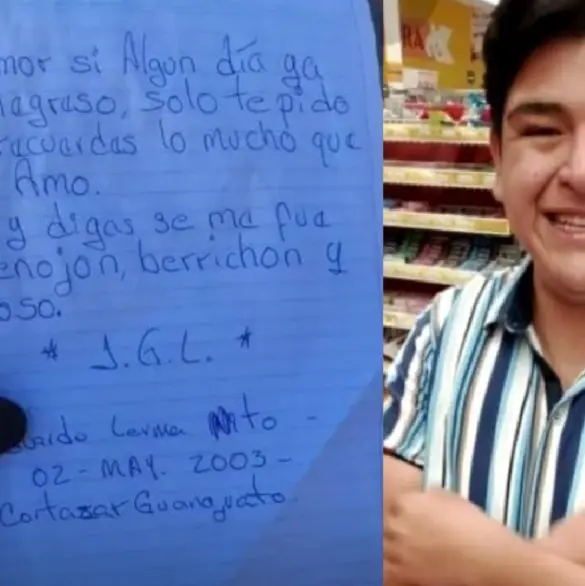 mor si Algun día ya
agraso, Solo te pido
racuerdas lo mucho que
Amo.
y digas se me fua
enojon, berrichon y
oso.
* J.G.L. *
uardo Lerma Nito -
02-MAY. 2003-
Cortazar Guanajuato
RA